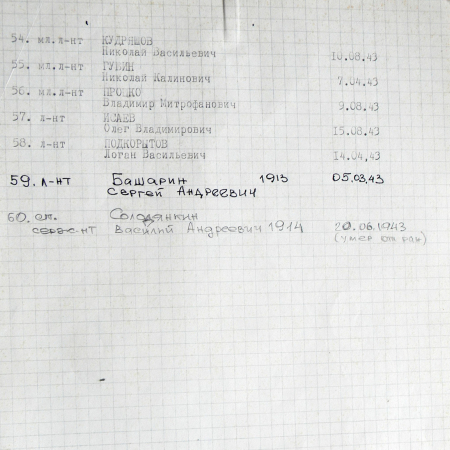 54. мл.л-нт КУДРЯШОВ
Николай Васильевич 10.08.43
55. мл.л-нт ГУБИН
Николай Калинович 7.04.43
56. мл.л-нт ПРОЦКО
Владимир Митрофанович 9.08.43
57. л-нт ИСАЕВ
Олег Владимирович 15.08.43
58. л-нт ПОДКОРЫТОВ
Логан Васильевич 14.04.43
59. л-нт Башарин 1913 05.03.43
Сергей Андреевич
60. ст. Солодянкин
серж-нт Василий Андреевич 1914 20.06.1943
(умер от ран)